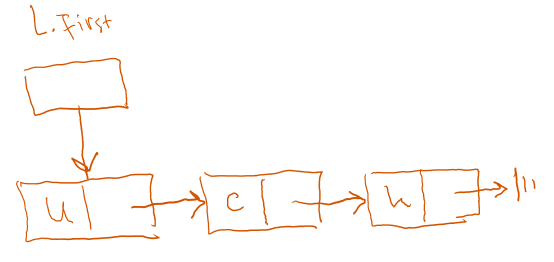 L.first
u c h